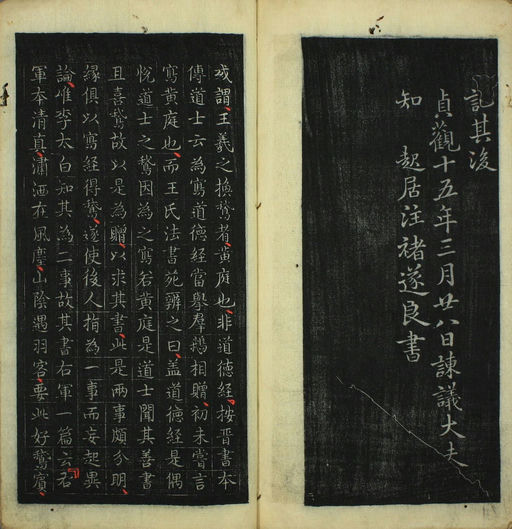 記其後
貞觀十五年三月廿八日諫議大夫
知 起居注褚遂良書
或謂王羲之換鵞者黄庭也非道德經按晉書本
傳道士云為寫道德經當舉羣鵞相贈初未嘗言
寫黄庭也而王氏法書苑辨之曰盖道德經是偶
悦道士之鵞因為之寫若黄庭是道士聞其善書
且喜鵞故以是為贈以求其書此是兩事頗分明
緣俱以寫經得鵞遂使後人指為一事而妄起異
論惟李太白知其為二事故其書右軍一篇云右
軍本清真瀟洒在風塵山陰遇羽客要此好鵞賓